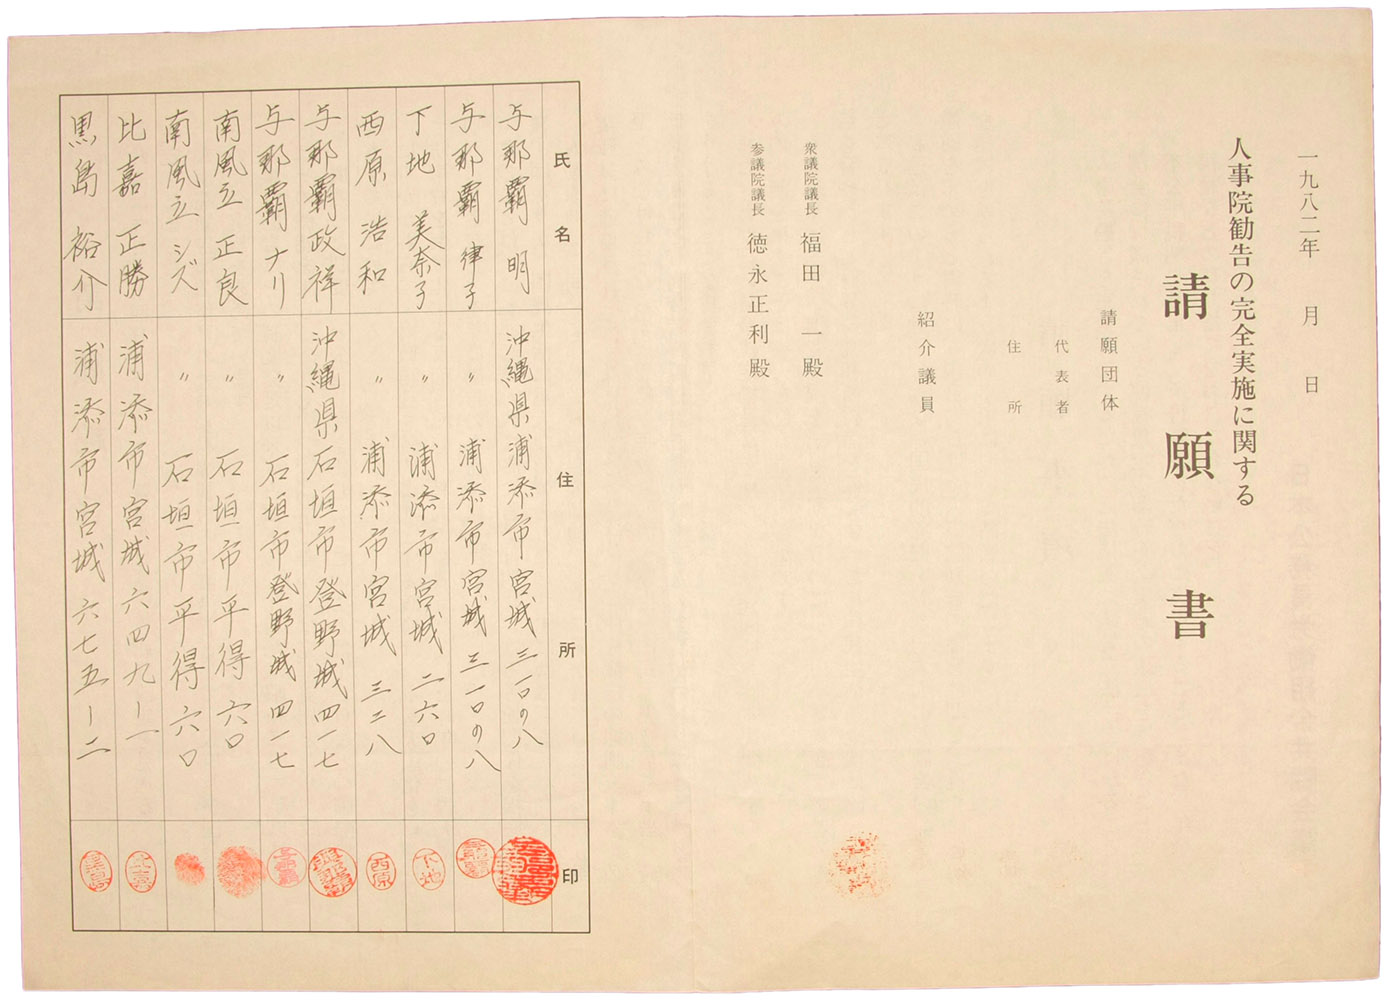 一九八二年　月　日
人事院勧告の完全実施に関する
請願書
請願団体
代表者
住所
紹介議員
衆議院議長　福田　一殿
参議院議長　徳永正利殿
氏名　住所　印
与那覇　明　沖縄県浦添市宮城三一〇の八
与那覇　律子　〃　浦添市宮城三一〇の八
下地　美奈子　〃　浦添市宮城二六〇　下地
西原　浩和　〃　浦添市宮城三二八　西原
与那覇政祥　沖縄県石垣市登野城四一七
与那覇ナリ　〃　石垣市登野城四一七
南風立　正良　〃　石垣市平得六〇
南風立シズ　〃　石垣市平得六〇
比嘉　正勝　浦添市宮城六四九ー一　比嘉
黒島　裕介　浦添市宮城六七五ー二　黒島